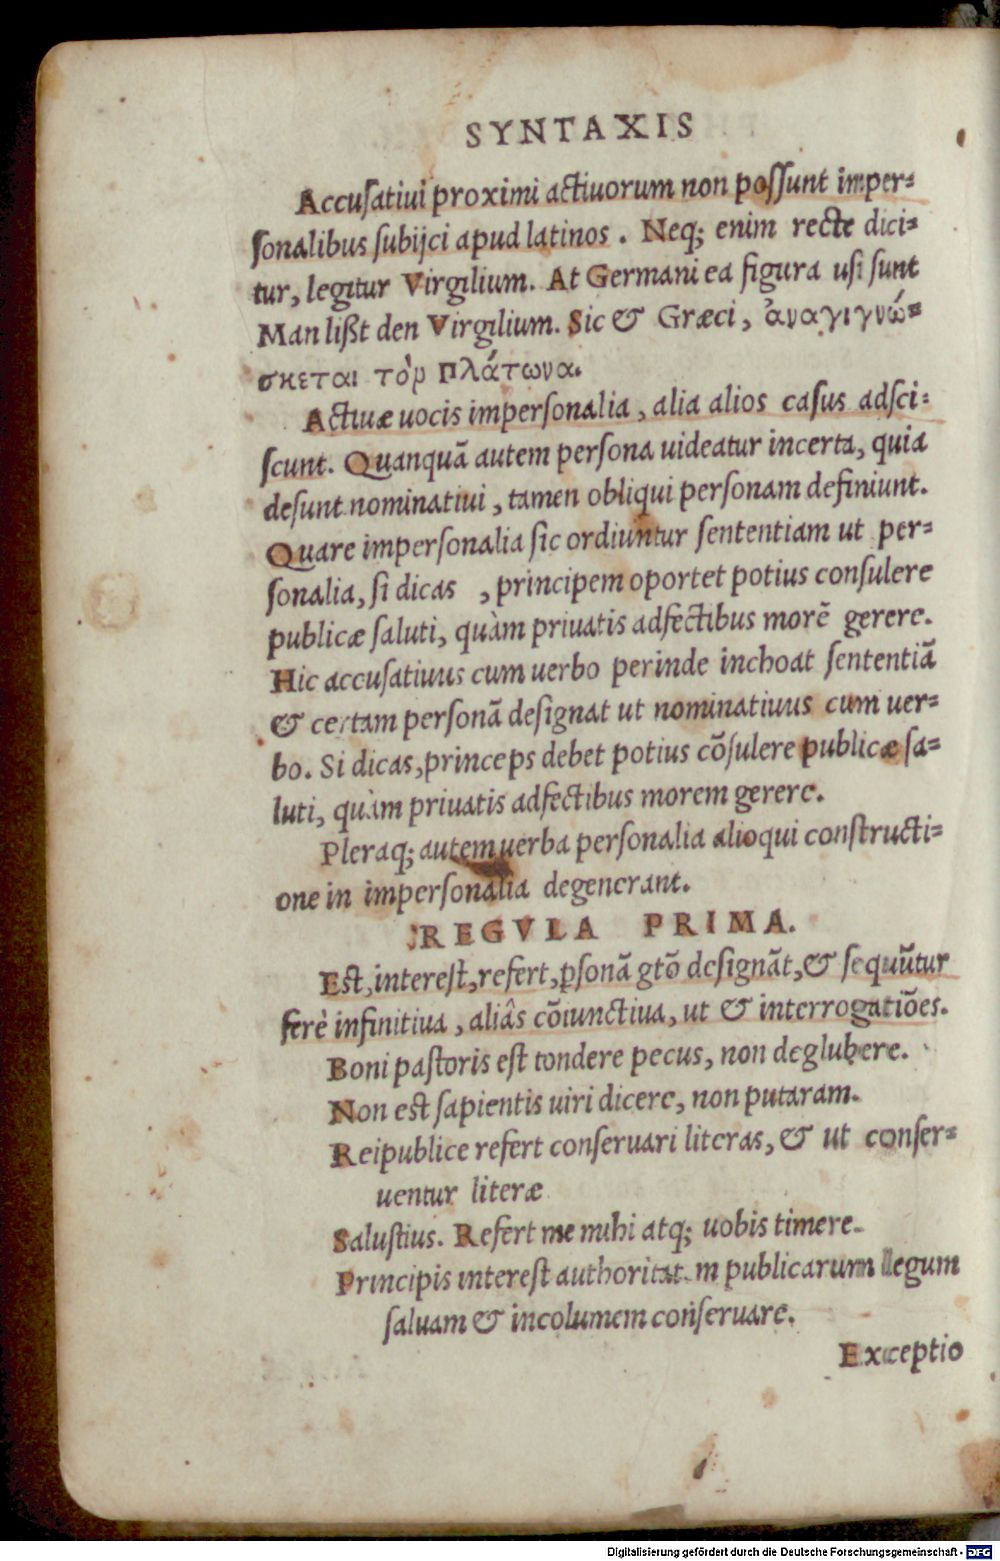 SYNTAXIS
Accusatiui proximi actiuorum non possunt imper=
sonalibus subijci apud latinos . Neq; enim recte dici=
tur, legitur Virgilium. At Germani ea figura usi sunt
Man lißt den Virgilium. Sic & Græci, ἀναγιγνώ=
σκεται τὸν Πλάτωνα.
Actiuæ uocis impersonalia, alia alios casus adsci=
scunt. Quanquã autem persona uideatur incerta, quia
desunt nominatiui, tamen obliqui personam definiunt.
Quare impersonalia sic ordiuntur sententiam ut per=
sonalia, si dicas , principem oportet potius consulere
publicæ saluti, quàm priuatis adfectibus morẽ gerere.
Hic accusatiuus cum uerbo perinde inchoat sententiã
& certam personã designat ut nominatiuus cum uer=
bo. Si dicas, princeps debet potius cõsulere publicæ sa=
luti, quàm priuatis adfectibus morem gerere.
Pleraq; autem uerba personalia alioqui constructi=
one in impersonalia degenerant.
REGVLA PRIMA.
Est, interest, refert, ꝑsonã gtõ designãt, & sequũtur
ferè infinitiua, aliâs cõiunctiua, ut & interrogatiões.
Boni pastoris est tondere pecus, non deglubere.
Non est sapientis uiri dicere, non putaram.
Reipublice refert conseruari literas, & ut conser=
uentur literæ
Salustius. Refert me mihi atq; uobis timere.
Principis interest authoritatem publicarum legum
saluam & incolumem conseruare.
Exceptio
Digitalisierung gefördert durch die Deutsche Forschungsgemeinschaft - DFG